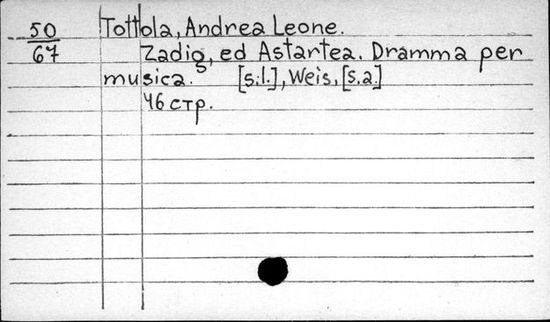 50 Tottola, Andrea Leone.
67 Zadig, ed Astartea. Dramma per
musica. [s.l.], Weis, [s.a.]
46 стр.